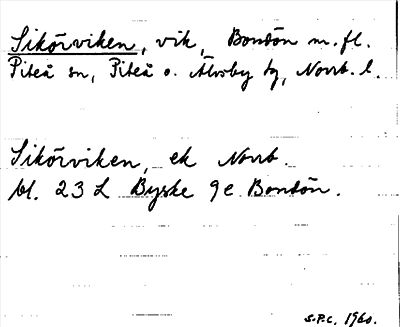 Sikörviken, vik, Bondön m.fl.
Piteå sn, Piteå o. Älvsby tg, Norrb. l.
Sikörviken, ek Norrb.
bl. 23 L Byske 9e Bondön.
S.P.C. 1960.